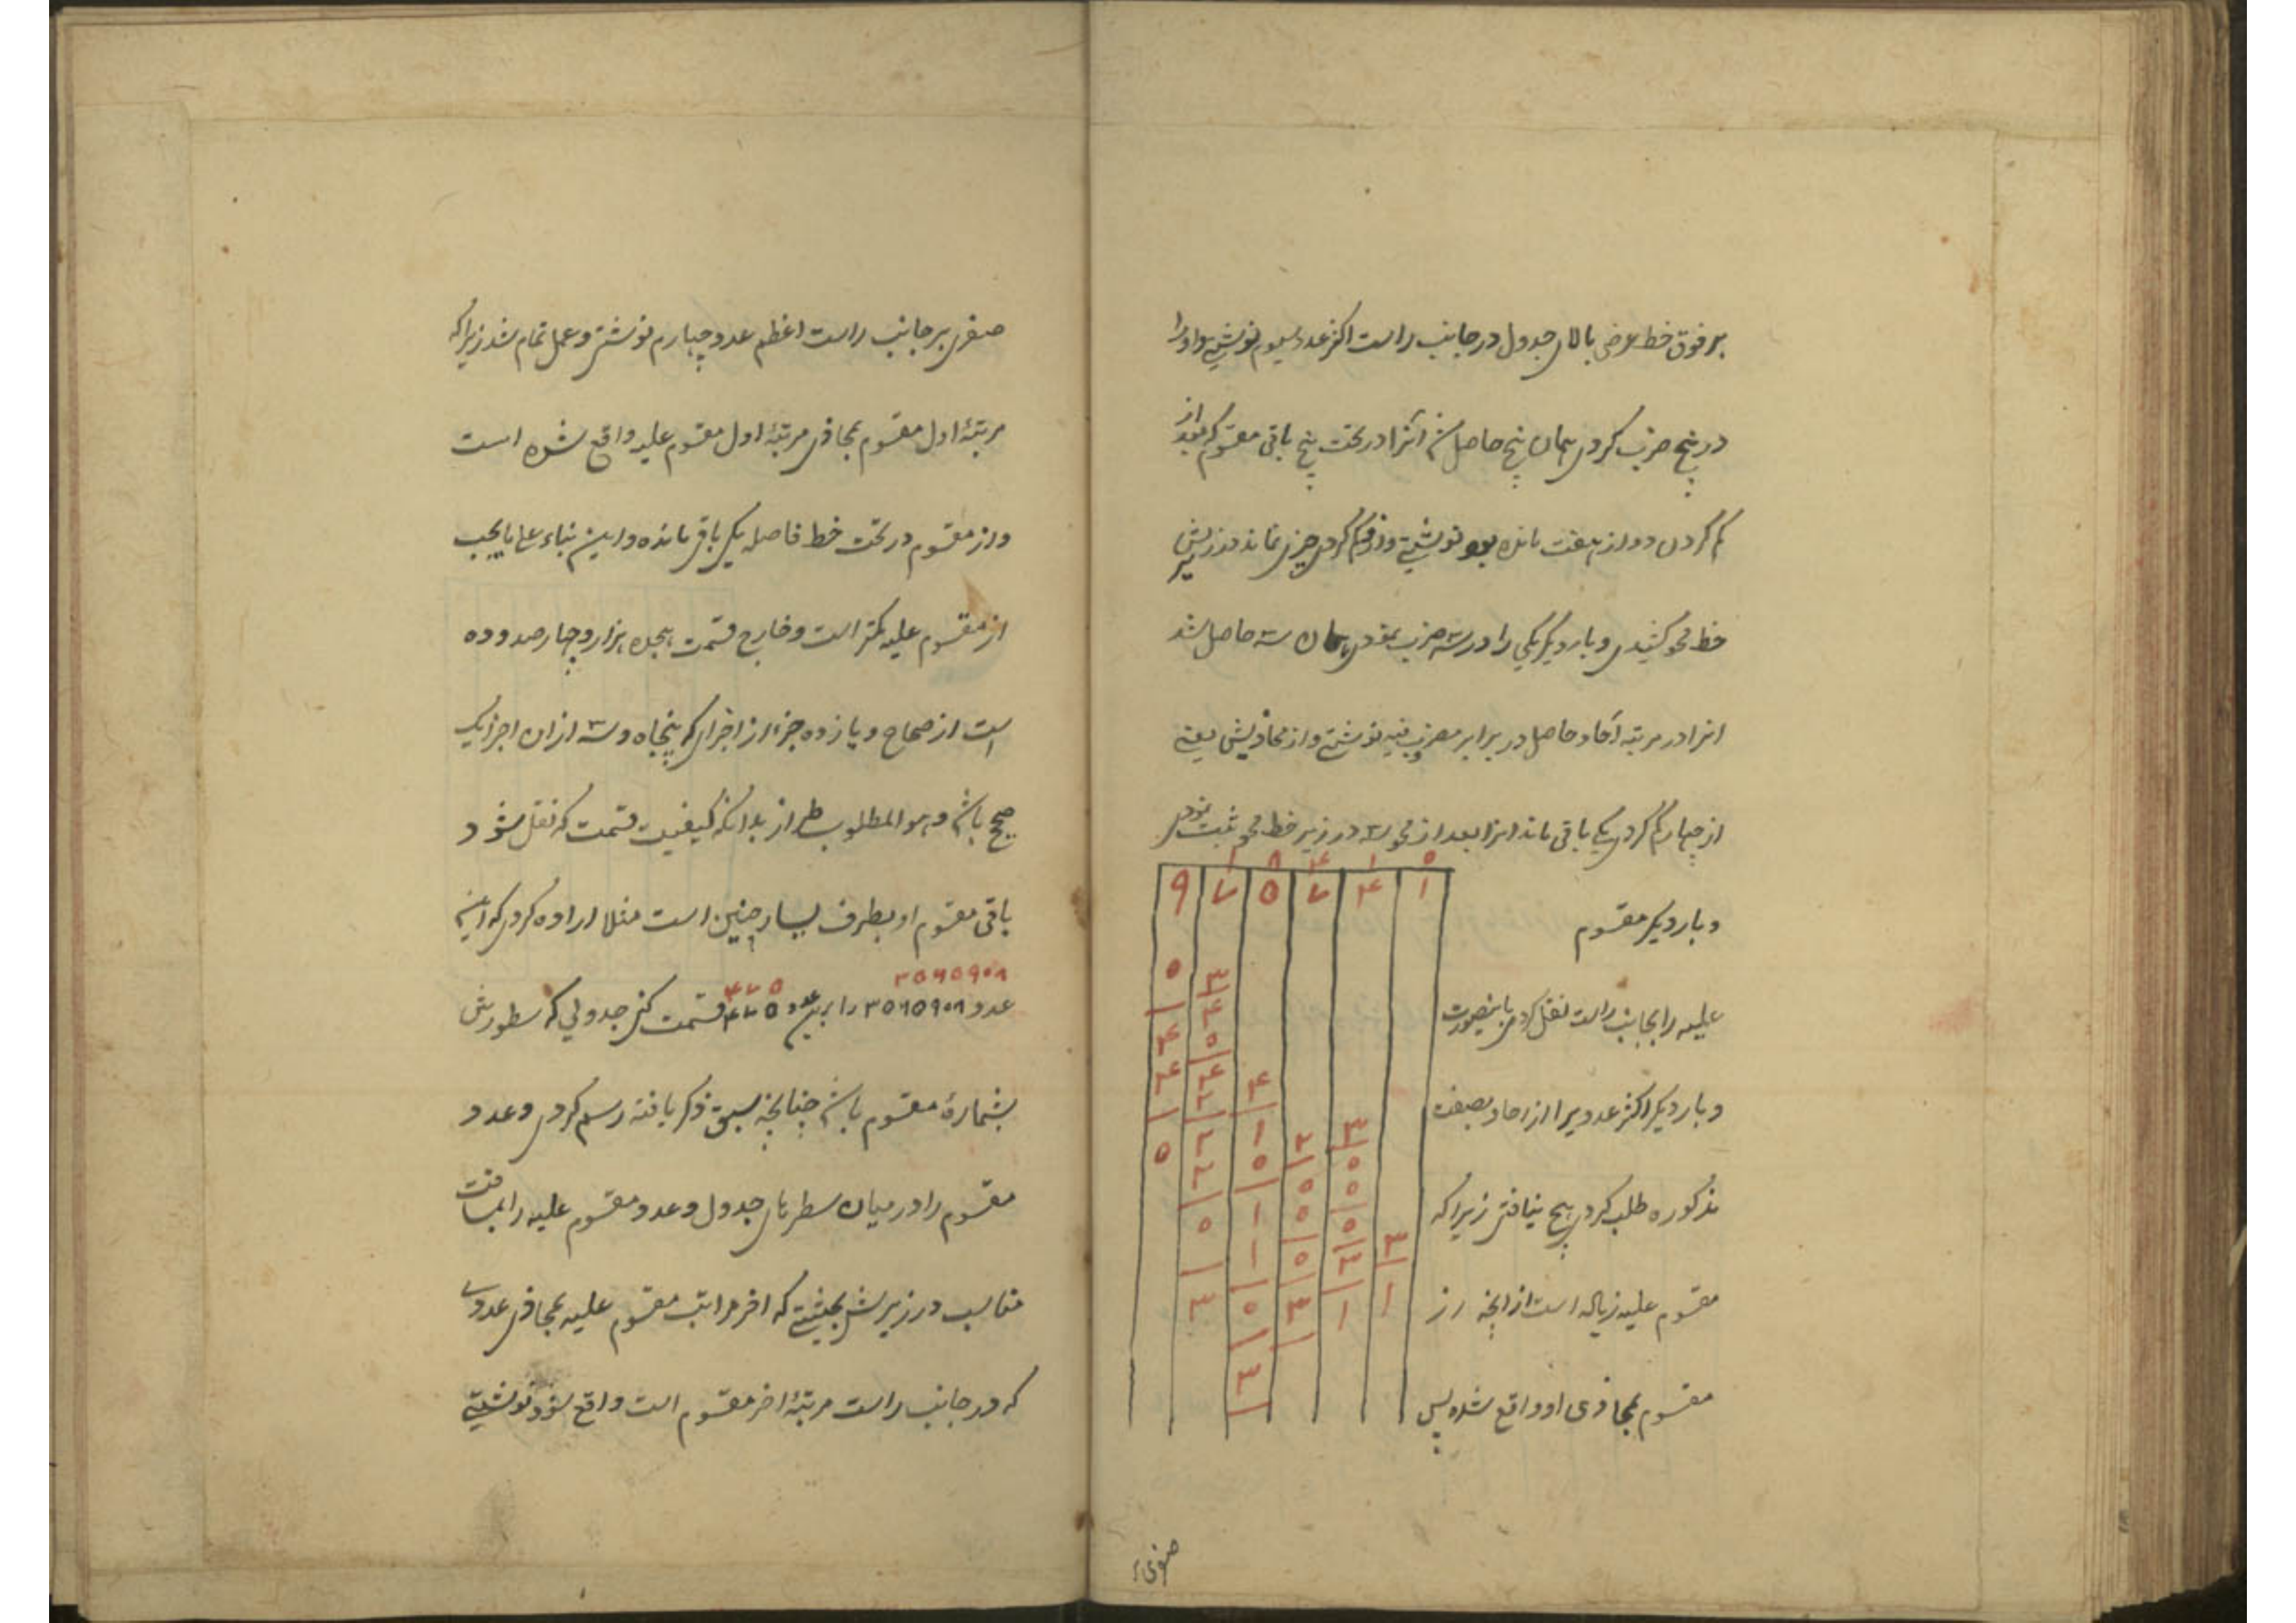 بر فوق خط عرضی بالای جدول در جانب راست اکثر عدد سیوم نوشتیم و او را
در پنج ضرب کردیم همان پنج حاصل شد آنرا در تحت پنج باقی مقسوم که بعد از
کم کردن دو از هفت مانده بود نوشتیم و ازو کم کردیم چیزی نماند در زیرش
خط محو کشیدیم و بار دیگر یکی را در سه ضرب نمودیم همان سه حاصل شد
انرا در مرتبه آحاد حاصل در برابر مضروب فیه نوشتیم و از محاذیش یعنے
از چهار کم کردیم یکے باقی ماند انرا بعد از محو سه در زیر خط محو ثبت نمودیم
۱ ۸ ۴ ۱ ۰
۹ ۷ ۵ ۷ ۴ ۱
و بار دیگر مقسوم
علیه را بجانب راست نقل کردیم باینصورت
و بار دیگر اکثر عددیرا از احاد بصفت
مذکوره طلب کردیم هیچ نیافتیم زیرا که
مقسوم علیه زیاده است از انچه از
مقسوم بمحاذی او واقع شده پس
صفری
صفری بر جانب راست اعظم عدد چهارم نوشتیم و عمل تمام شد زیرا که
مرتبهٔ اول مقسوم بمحاذی مرتبهٔ اول مقسوم علیه واقع شده است
و از مقسوم در تحت خط فاصل یکی باقی مانده و این بناء علی مایجب
از مقسوم علیه کمتر است و خارج قسمت هجده هزار و چهار صد و ده
است از صحاح و یازده جزء از اجزای که پنجاه و سه از ان اجزا یک
صحیح باشد و هو المطلوب طراز بدانکه کیفیت قسمت که نقل شود
باقی مقسوم او بطرف یسار چنین است مثلا اراده کردیم که این
۳۵۶۵۹۰۸ ۴۷۵
عدد ۳۵۶۵۹۰۸ را برین عدد ۴۷۵ قسمت کنیم جدولی که سطورش
بشمارهٔ مقسوم باشد چنانچه سبق ذکر یافته رسم کردیم و عدد
مقسوم را در میان سطرهای جدول و عدد مقسوم علیه را بمسافت
مناسب در زیرش بحیثیتے که اخر مراتب مقسوم علیه بمحاذی عددے
که در جانب راست مرتبهٔ اخر مقسوم است واقع شود نوشتیم